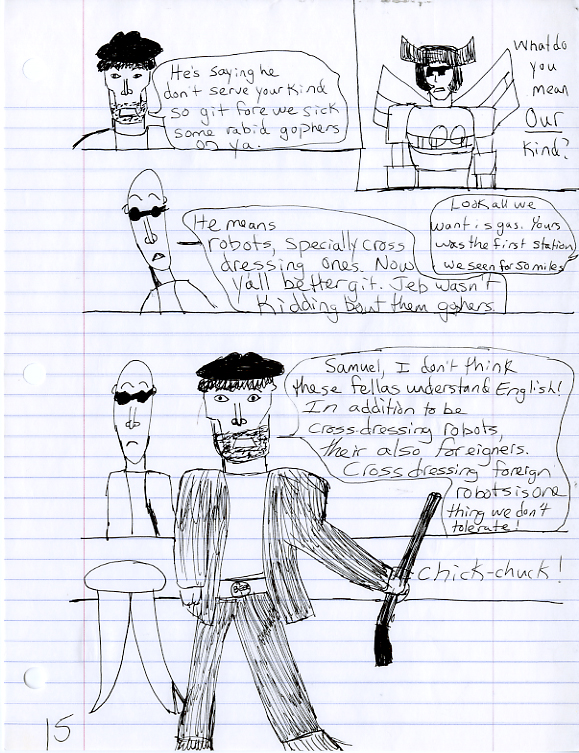 He's saying he
don't serve your kind
so git fore we sick
some rabid gophers
on ya.
What do
you
mean
Our
kind?
He means
robots, specially cross
dressing ones. Now
yall better git. Jeb wasn't
kidding bout them gophers.
Look all we
want is gas. Yours
was the first station
we seen for 50 miles
Samuel, I don't think
these fellas understand English!
In addition to be
cross-dressing robots,
their also foreigners.
Cross dressing foreign
robots is one
thing we don't
tolerate!
Chick-chuck!
15